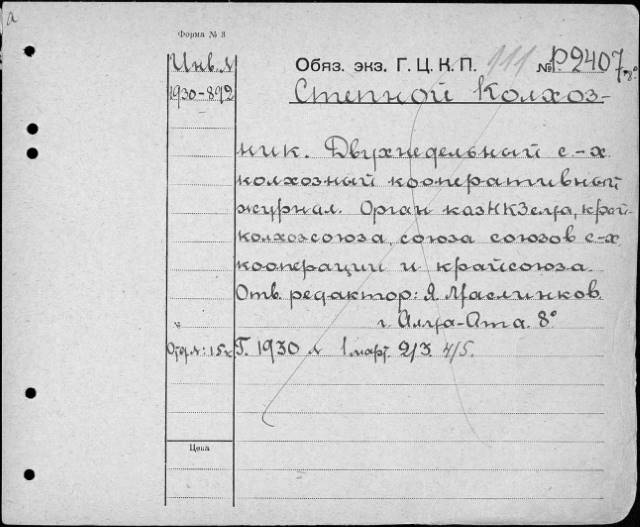 а
Форма № 3
Инв. №
1930-892
Обяз. экз. Г. Ц. К. П. 111 № Р2407 8°
Степной Колхоз-
ник. Двухнедельный с.-х
колхозный кооперативный
журнал. Орган казНКЗема, край-
колхозсоюза, союза союзов с-х
кооперации и крайсоюза.
Отв. редактор: Я. Маслинков
г. Алма-Ата. 8°
Отд. №: 15к Г. 1930 № 1 март. 2/3. 4/5.
Цена